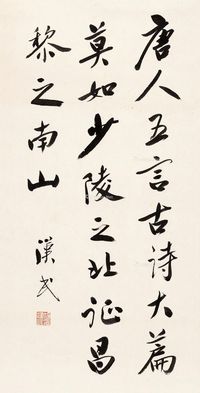 唐人五言古诗大篇
莫如少陵之北证昌
黎之南山
漢民